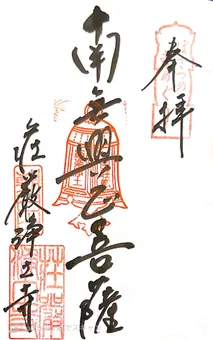 奉拝
南無興正菩薩
荘厳浄土寺